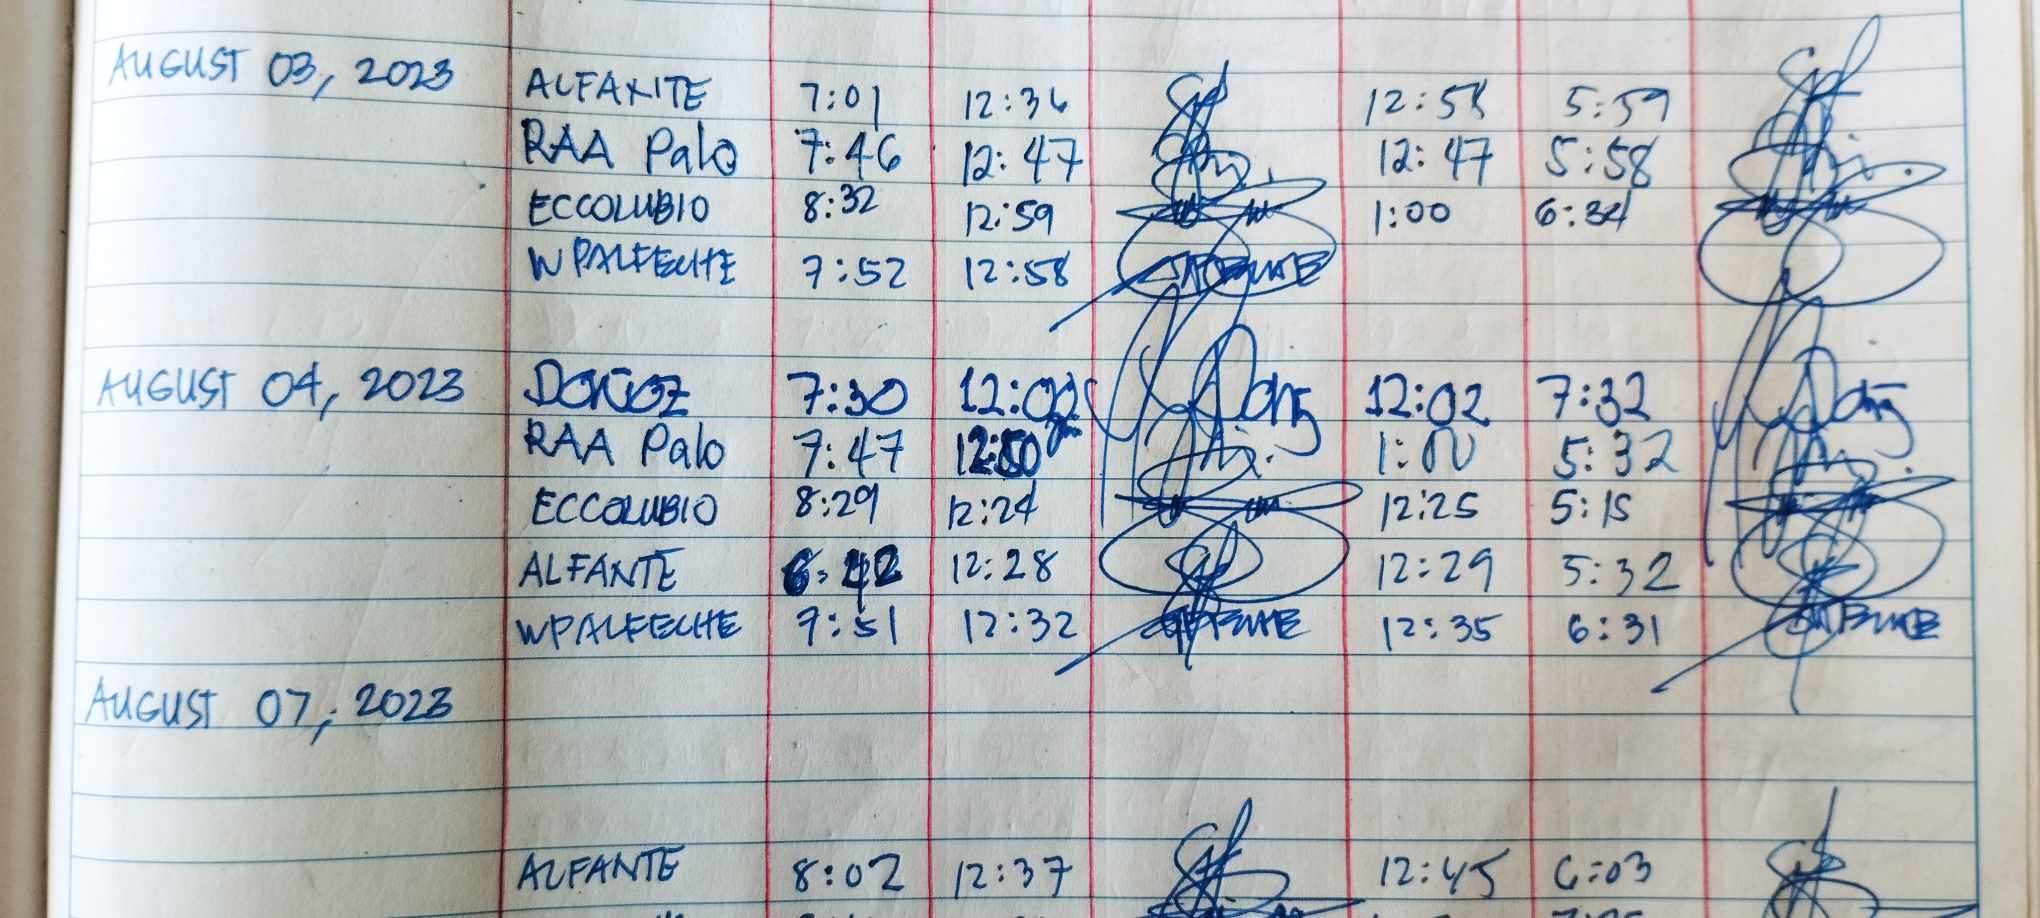 AUGUST 03, 2023 ALFANTE 7:01 12:36 12:58 5:59
RAA Palo 7:46 12:47 12:47 5:58
ECCOLUBIO 8:32 12:59 1:00 6:34
WPALFECHE 7:52 12:58
AUGUST 04, 2023 7:30 12:02 7:32
RAA Palo 7:47 12:50 1:00 5:32
ECCOLUBIO 8:29 12:24 12:25 5:15
ALFANTE 6:42 12:28 12:29 5:32
WPALFECHE 7:51 12:32 12:35 6:31
AUGUST 07, 2023
ALFANTE 8:02 12:37 12:45 6:03